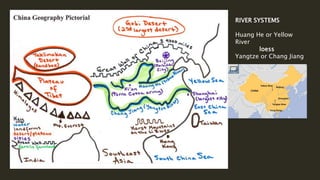 China Geography Pictorial
Gobi Desert
(2nd largest desert)
Taklimakan
Desert
(sandbox)
Plateau
of
Tibet
Great Wall
China
Beijing
Xi'an
(Terra Cotta Army)
Yellow Sea
Chang Jiang (Yangtze River)
Shanghai
(largest city)
East China
Sea
Taiwan
Karst Mountains
Hong
Kong
Key
Water
landforms
desert/plateau
cities
Great Wall
Mt. Everest
India
Southeast
Asia
South China Sea
RIVER SYSTEMS
Huang He or Yellow
River
loess
Yangtze or Chang Jiang